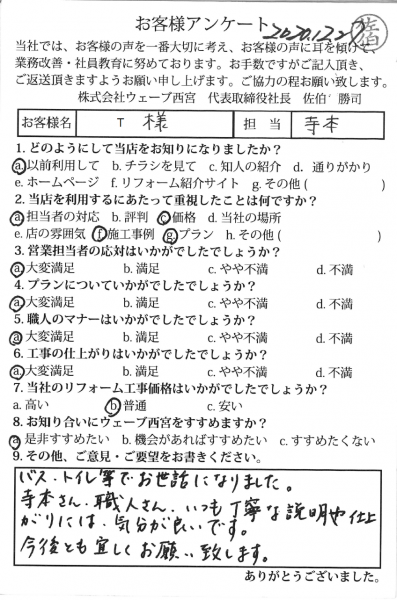 お客様アンケート 2020.12.27 佐伯
当社では、お客様の声を一番大切に考え、お客様の声に耳を傾け、
業務改善・社員教育に努めております。お手数ですがご記入頂き、
ご返送頂きますようお願い申し上げます。ご協力の程お願い致します。
株式会社ウェーブ西宮 代表取締役社長 佐伯 勝司
お客様名 T 様 担当 寺本
1. どのようにして当店をお知りになりましたか?
a.以前利用して b.チラシを見て c.知人の紹介 d. 通りがかり
e.ホームページ f.リフォーム紹介サイト g.その他( )
2. 当店を利用するにあたって重視したことは何ですか?
a.担当者の対応 b.評判 c.価格 d.当社の場所
e.店の雰囲気 f.施工事例 g.プラン h.その他( )
3. 営業担当者の応対はいかがでしたでしょうか?
a.大変満足 b.満足 c.やや不満 d.不満
4. プランについていかがでしたでしょうか?
a.大変満足 b.満足 c.やや不満 d.不満
5. 職人のマナーはいかがでしたでしょうか?
a.大変満足 b.満足 c.やや不満 d.不満
6. 工事の仕上がりはいかがでしたでしょうか?
a.大変満足 b.満足 c.やや不満 d.不満
7. 当社のリフォーム工事価格はいかがでしたでしょうか?
a.高い b.普通 c.安い
8. お知り合いにウェーブ西宮をすすめますか?
a.是非すすめたい b.機会があればすすめたい c.すすめたくない
9. その他、ご意見・ご要望をお書きください。
バス・トイレ等でお世話になりました。
寺本さん、職人さん、いつも丁寧な説明や仕上
がりには、気分が良いです。
今後とも宜しくお願い致します。
ありがとうございました。